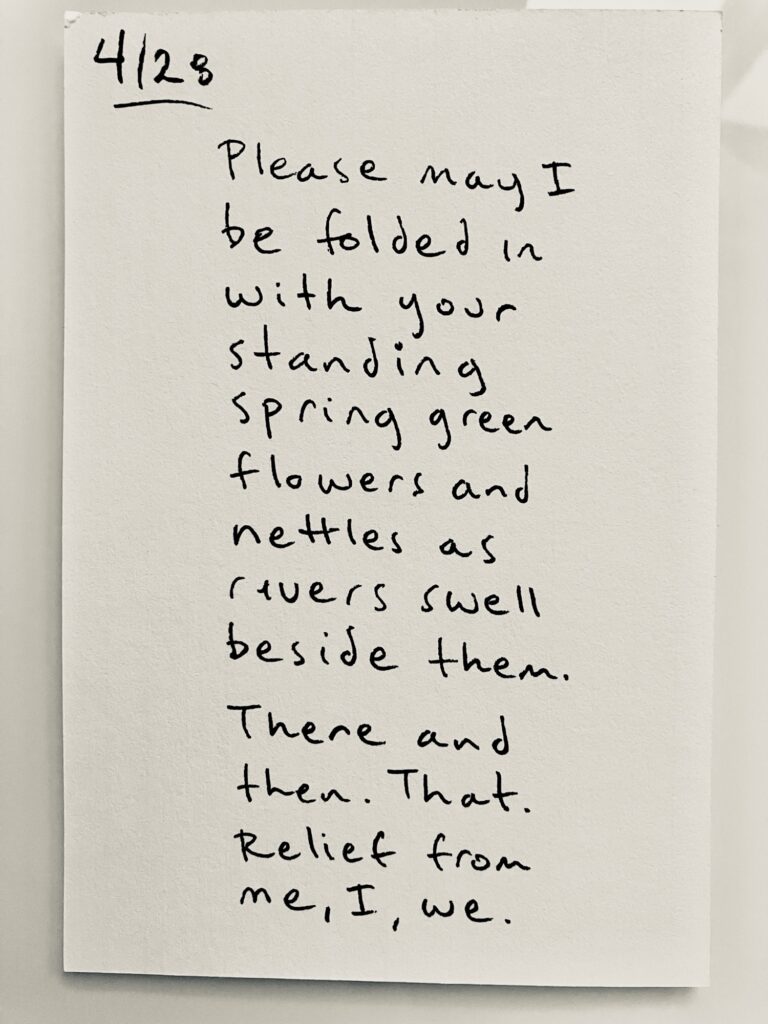 4/28
Please may I
be folded in
with your
standing
spring green
flowers and
nettles as
rivers swell
beside them.
There and
then. That.
Relief from
me, I, we.